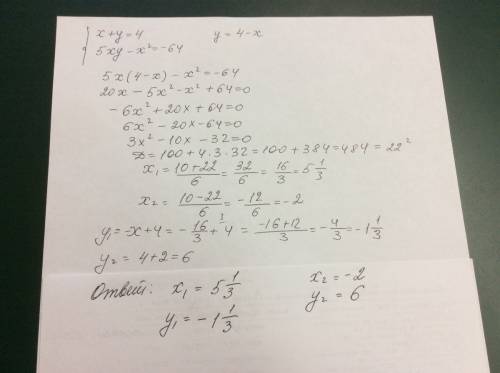 { x+y=4 y=4-x
5xy-x²=-64
5x(4-x)-x²=-64
20x-5x²-x²+64=0
-6x²+20x+64=0
6x²-20x-64=0
3x²-10x-32=0
D=100+4·3·32=100+384=484=22²
x₁=(10+22)/6=32/6=16/3=5 1/3
x₂=(10-22)/6=-12/6=-2
y₁=-x+4=-16/3+4=(-16+12)/3=-4/3=-1 1/3
y₂=4+2=6
Ответ: x₁=5 1/3 x₂=-2
y₁=-1 1/3 y₂=6